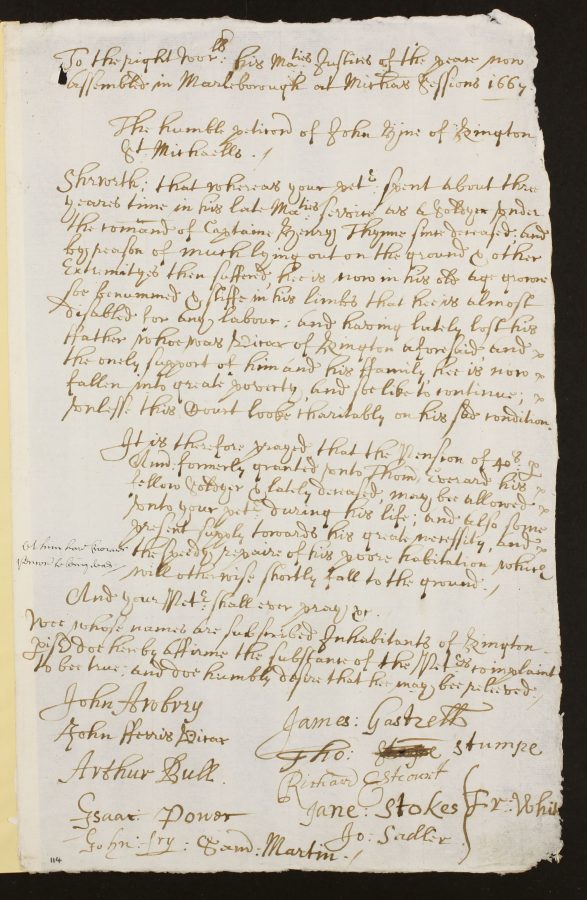 To the right wor:ll his Ma:ties Justices of the peace now
Assembled in Marleborough at Mich:as Sessions 1667
The humble peticon of John Pyne of Kington
St: Michaells. /
Sheweth; that whereas your pet:r spent about three
yeares time in his late Ma:ties service as a Soldyer under
the comand of Captaine Henry Thynne since deceased; and
by reason of much lying out on the ground & other
Extremityes then suffered, hee is now in his old age growne
soe benummed & stiffe in his limbs that hee is almost
disabled for any labour; and having lately lost his
ffather whoe was Vicar of Kington aforesaid, and
the onely support of him and his ffamily, hee is now
fallen into greate poverty, and soe like to continue;
unlesse this Court looke charitably on his sad condition.
It is therefore prayed that the Pension of 40s. p
Ann: formerly granted unto Thom: Everard his
fellow Soldyer & lately deceased, may be allowed
unto your pet:r during his life; and also some
present supply towards his greate necessity, and
the speedy repaire of his poore habitation which
will otherwise shortly fall to the ground. /
let him have
pencon
And your Pet:r shall ever pray &c.
Wee whose names are subscribed Inhabitants of Kington
p'ish doe hereby affirme the substance of the Pet:rs complaint
to bee true; and doe humbly desire that he may bee relieved. /
John Arobery
John fferris Vicar
Arthur Bull.
Isaac Power
John: Ivy: Samu: Martin. /
James: Gastrell
Tho: Stumpe
Richard Estcourt
Jane: Stokes
Jo: Sadler
Fr: Whit
114